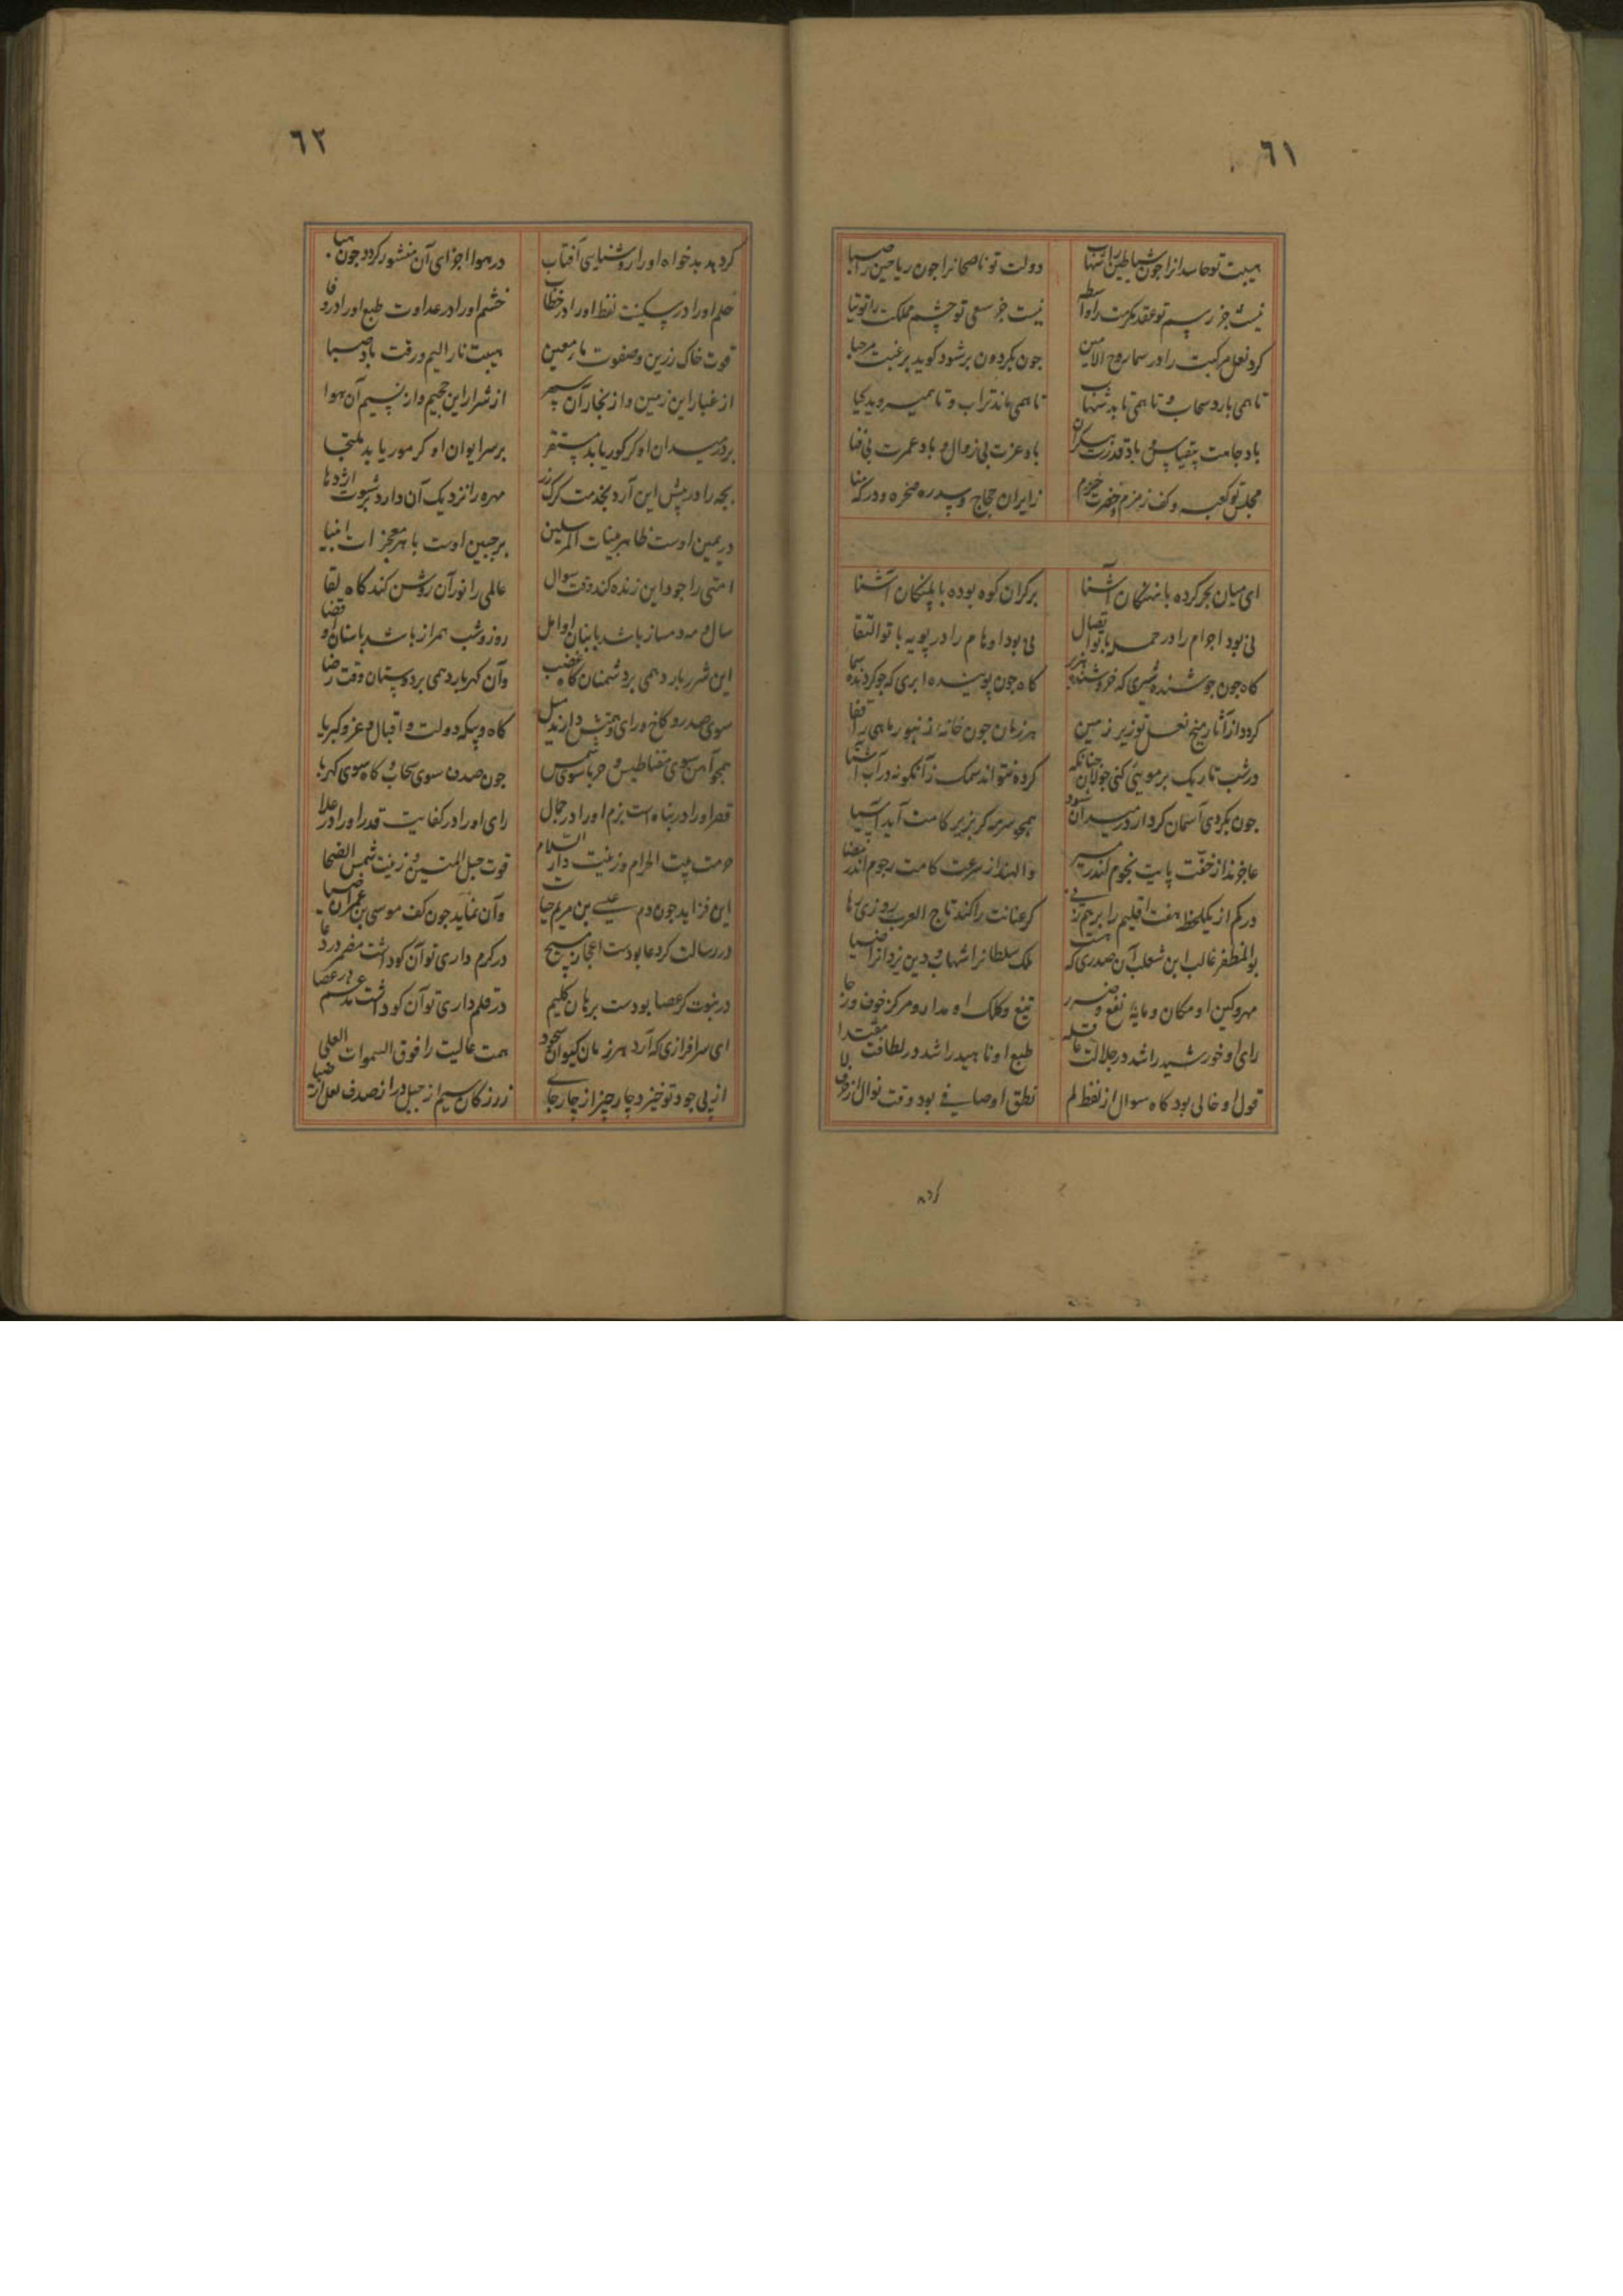 ٦١
هیبت تو حاسدانرا چون شیاطین را شهاب دولت تو ناصحانرا جون ریاحین را صبا
نیست جز رسم تو عقد مکرمت را واسطه نیست جز سعی تو چشم مملکت را توتیا
کرد نعل مرکبت را در سما روح الامین جون بکردون بر شود کوید برغبت مرحبا
تا همی بارد سحاب و تا همی تابد شهاب تا همی ماند تراب و تا همی روید کیا
باد جاهت بیقیاس و باد قدرت بیکران باد عزت بی زوال و باد عمرت بی فنا
مجلس تو کعبه و کف زمزم و حضرت زایران حجاج و سدره صخره و درکه منا
ای میان بحر کرده با نهنکان آشنا بر کران کوه بوده با پلنکان آشنا
نی بود اجرام را در حمله با تو اتصال نی بود اوهام را در پویه با تو التقا
کاه جون جوشنده شیری که خروشنده هزبر کاه جون پوینده ابری که جو کردنده سما
کردد از آثار میخ نعل تو زیر زمین هر زمان جون خانه زنبور ماهی را قفا
در شب تاریک بر موئی کنی جولان جنانکه کرد نتواند سمک زآنکونه در آب آشنا
جون بکردی آسمان کردار در میدان شود همجو سرمه کر بزیر کامت آید آسیا
عاجزند از خفت پایت نجوم اندر مسیر والهند از سرعت کامت رجوم اندر فضا
در کم از یکلحظه هفت اقلیم را بر هم زنی کر عنانت را کند تاج العرب روزی رها
بوالمظفر غالب ابن ثعلب آن صدری که هست ملک سلطانرا شهاب و دین یزدانرا ضیا
مهر و کین او مکان و مایهٔ نفع و ضرر تیغ و کلک او مدار و مرکز خوف و رجا
رای او خورشید را شد در جلالت قبله طبع او ناهید را شد در لطافت مقتدا
قول او خالی بود کاه سوال از لفظ لم نطق او صافی بود وقت نوال از حرف لا
کرد
٦٢
کر دهد بدخواه او را روشنایی آفتاب در هوا اجزای آن منشور کردد جون هبا
حلم او را در سکینت لفظ او را در خطاب خشم او را در عداوت طبع او را در وفا
قوت خاک رزین و صفوت ماء معین هیبت نار الیم و رقت باد صبا
از غبار این زمین و از بخار آن سپهر از شرار این جحیم و از نسیم آن هوا
بر در میدان او کر کور یابد مستقر بر سر ایوان او کر مور یابد ملتجا
بچه را در پیش این آرد بخدمت کرک نر مهره را نزدیک آن دارد برشوت اژدها
در یمین اوست ظاهر بینات المرسلین بر جبین اوست باهر معجزات انبیا
امتی را جود این زنده کند وقت سوال عالمی را نور آن روشن کند کاه لقا
سال و مه دمساز باشد با بنان او امل روز و شب همراز باشد با سنان او قضا
این شرر بارد همی بر دشمنان کاه غضب وآن کهر بارد همی بر دوستان وقت رضا
سوی صدر و کاخ و رای و همتش دارند میل کاه و بیکه دولت و اقبال و عز و کبریا
همجو آهن سوی مغناطیس و حربا سوی شمس جون صدف سوی سحاب و کاه سوی کهربا
قصر او را در پناه است بزم او را در جمال رای او را در کفایت قدر او را در علا
حرمت بیت الحرام و زینت دار السلام قوت حبل المتین و زینت شمس الضحا
این فزاید جون دم عیسی بن مریم حیات وآن نماید جون کف موسی بن عمران ضیا
در رسالت کر دعا بودست اعجاز مسیح در کرم داری تو آن کو داشت مضمر در دعا
در نبوت کر عصا بودست برهان کلیم در قلم داری تو آن کو داشت مدغم در عصا
ای سرافرازی که آرد هر زمان کیوان سجود همت عالیت را فوق السموات العلی
از پی جود تو خیزد چار چیز از چار جای زر ز کان سیم از جبل در از صدف لعل از ضیا